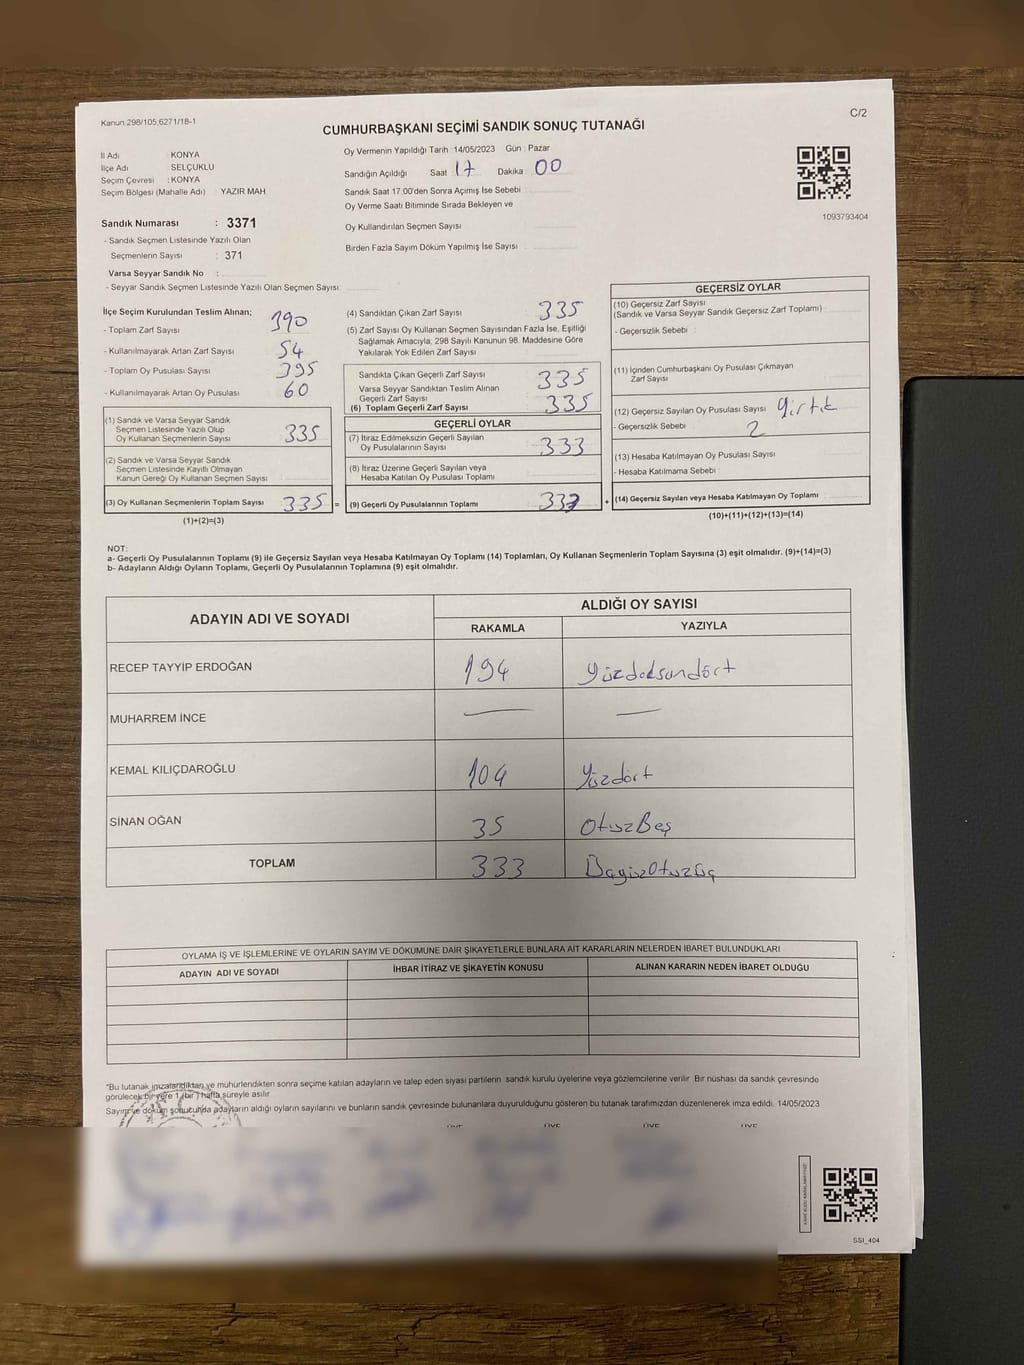 Kanun 298/105,6271/18-1
C/2
CUMHURBAŞKANI SEÇİMİ SANDIK SONUÇ TUTANAĞI
İl Adı : KONYA
İlçe Adı : SELÇUKLU
Seçim Çevresi : KONYA
Seçim Bölgesi (Mahalle Adı) : YAZIR MAH.
Oy Vermenin Yapıldığı Tarih :14/05/2023 Gün : Pazar
Sandığın Açıldığı Saat 17 Dakika 00
Sandık Saat 17:00'den Sonra Açımış İse Sebebi :
Oy Verme Saati Bitiminde Sırada Bekleyen ve
Oy Kullandırılan Seçmen Sayısı :
Birden Fazla Sayım Döküm Yapılmış İse Sayısı :
1093793404
Sandık Numarası : 3371
- Sandık Seçmen Listesinde Yazılı Olan
Seçmenlerin Sayısı : 371
Varsa Seyyar Sandık No :
- Seyyar Sandık Seçmen Listesinde Yazılı Olan Seçmen Sayısı:
İlçe Seçim Kurulundan Teslim Alınan;
- Toplam Zarf Sayısı 390
- Kullanılmayarak Artan Zarf Sayısı 54
- Toplam Oy Pusulası Sayısı 395
- Kullanılmayarak Artan Oy Pusulası 60
(1) Sandık ve Varsa Seyyar Sandık
Seçmen Listesinde Yazılı Olup
Oy Kullanan Seçmenlerin Sayısı 335
(2) Sandık ve Varsa Seyyar Sandık
Seçmen Listesinde Kayıtlı Olmayan
Kanun Gereği Oy Kullanan Seçmen Sayısı :
(3) Oy Kullanan Seçmenlerin Toplam Sayısı 335 =
(1)+(2)=(3)
(4) Sandıktan Çıkan Zarf Sayısı : 335
(5) Zarf Sayısı Oy Kullanan Seçmen Sayısından Fazla İse, Eşitliği
Sağlamak Amacıyla, 298 Sayılı Kanunun 98. Maddesine Göre
Yakılarak Yok Edilen Zarf Sayısı :
Sandıkta Çıkan Geçerli Zarf Sayısı : 335
Varsa Seyyar Sandıktan Teslim Alınan
Geçerli Zarf Sayısı :
(6) Toplam Geçerli Zarf Sayısı 335
GEÇERLİ OYLAR
(7) İtiraz Edilmeksizin Geçerli Sayılan
Oy Pusulalarının Sayısı : 333
(8) İtiraz Üzerine Geçerli Sayılan veya
Hesaba Katılan Oy Pusulası Toplamı :
(9) Geçerli Oy Pusulalarının Toplamı 333 +
GEÇERSİZ OYLAR
(10) Geçersiz Zarf Sayısı
(Sandık ve Varsa Seyyar Sandık Geçersiz Zarf Toplamı) :
- Geçersizlik Sebebi :
(11) İçinden Cumhurbaşkanı Oy Pusulası Çıkmayan
Zarf Sayısı :
(12) Geçersiz Sayılan Oy Pusulası Sayısı : yırtık
- Geçersizlik Sebebi : 2
(13) Hesaba Katılmayan Oy Pusulası Sayısı :
- Hesaba Katılmama Sebebi :
(14) Geçersiz Sayılan veya Hesaba Katılmayan Oy Toplamı
(10)+(11)+(12)+(13)=(14)
NOT:
a- Geçerli Oy Pusulalarının Toplamı (9) ile Geçersiz Sayılan veya Hesaba Katılmayan Oy Toplamı (14) Toplamları, Oy Kullanan Seçmenlerin Toplam Sayısına (3) eşit olmalıdır. (9)+(14)=(3)
b- Adayların Aldığı Oyların Toplamı, Geçerli Oy Pusulalarının Toplamına (9) eşit olmalıdır.
ADAYIN ADI VE SOYADI
ALDIĞI OY SAYISI
RAKAMLA YAZIYLA
RECEP TAYYİP ERDOĞAN 194 Yüzdoksandört
MUHARREM İNCE — —
KEMAL KILIÇDAROĞLU 104 Yüzdört
SİNAN OĞAN 35 OtuzBeş
TOPLAM 333 ÜçyüzOtuzüç
OYLAMA İŞ VE İŞLEMLERİNE VE OYLARIN SAYIM VE DÖKÜMÜNE DAİR ŞİKAYETLERLE BUNLARA AİT KARARLARIN NELERDEN İBARET BULUNDUKLARI
ADAYIN ADI VE SOYADI İHBAR İTİRAZ VE ŞİKAYETİN KONUSU ALINAN KARARIN NEDEN İBARET OLDUĞU
*Bu tutanak imzalandıktan ve mühürlendikten sonra seçime katılan adayların ve talep eden siyasi partilerin sandık kurulu üyelerine veya gözlemcilerine verilir Bir nüshası da sandık çevresinde
görülecek bir yere 1 (bir) hafta süreyle asılır
Sayım ve döküm sonucunda adayların aldığı oyların sayılarını ve bunların sandık çevresinde bulunanlara duyurulduğunu gösteren bu tutanak tarafımızdan düzenlenerek imza edildi. 14/05/2023
ÜYE ÜYE ÜYE ÜYE
SSI_404